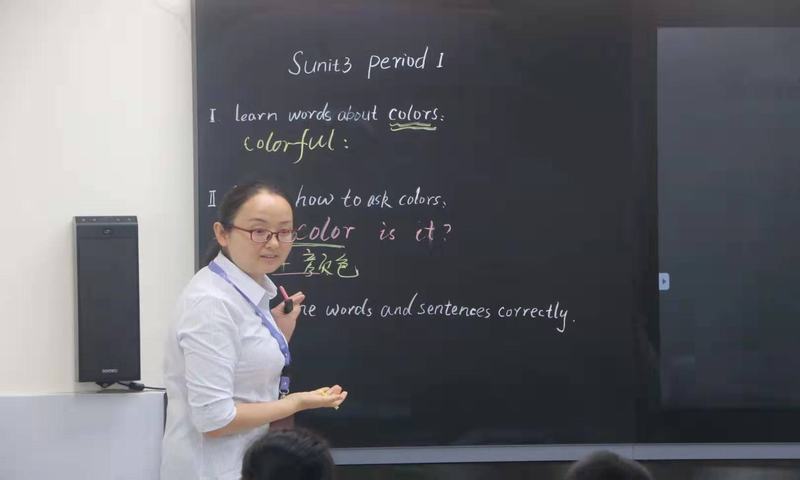 Sunit3 period I
I learn words about colors:
colorful:
II how to ask colors:
color is it?
颜色
words and sentences correctly.